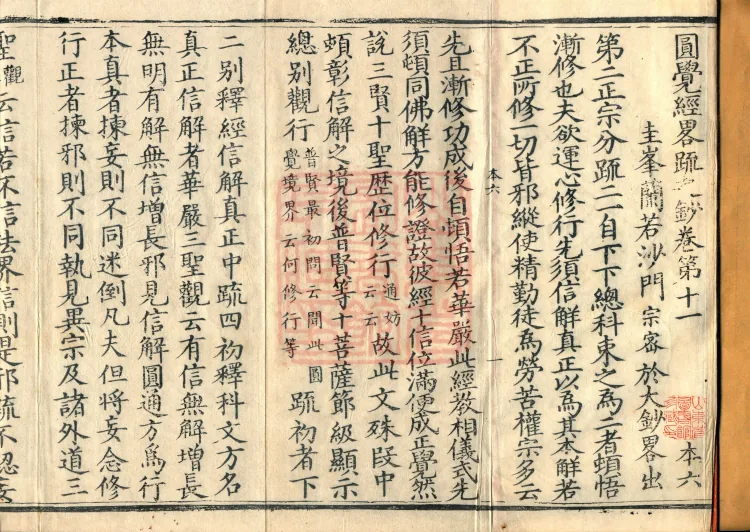 圓覺經畧疏之鈔卷第十一 本六
圭峯蘭若沙門宗密於大鈔畧出
第二正宗分疏二一自下下總科束之為二者頓悟
漸修也夫欲運心修行先須信解真正以為其本解若
不正所修一切皆邪縱使精勤徒為勞苦權宗多云
先且漸修功成後自頓悟若華嚴此經教相儀式先
須頓同佛解方能修證故彼經十信位滿便成正覺然
本六 一
說三賢十聖歷位修行通妨云云故此文殊段中
頓彰信解之境後普賢等十菩薩節級顯示
總別觀行普賢最初問云聞此圓覺境界云何修行等疏初者下
二別釋經信解真正中疏四初釋科文方名
真正信解者華嚴三聖觀云有信無解增長
無明有解無信增長邪見信解圓通方為行
本真者揀妄則不同迷倒凡夫但將妄念修
行正者揀邪則不同執見異宗及諸外道三
聖觀云信若不信法界信則是邪疏不認妄